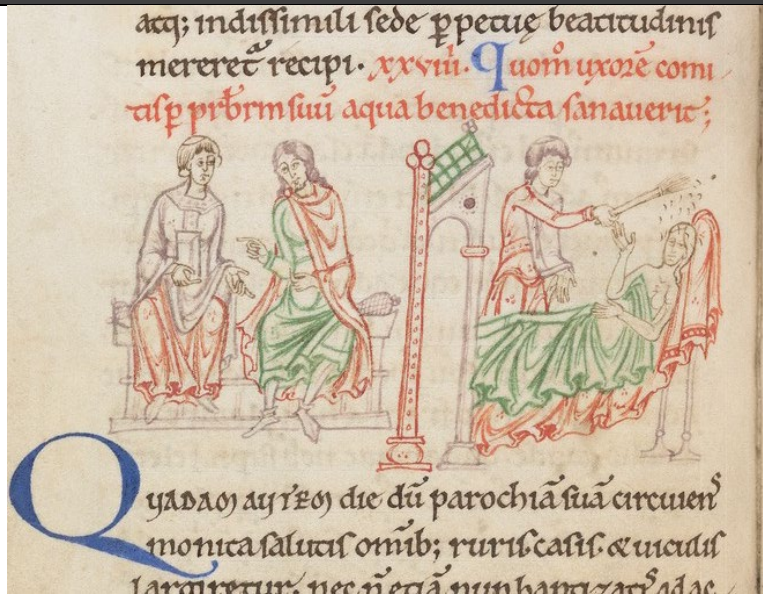 atq; indissimili sede ꝑpetuę beatitudinis
mereret᷑ recipi. xxviii. Quom̅ uxorē comi
tis ꝑ prb̅rm suū aqua benedicta sanauerit;
QUADAM AUTEM die dū parochiā suā circuiens
monita salutis om̅ib; ruris casis & uiculis
largiretur, nec n̅ etiā nup baptizatis ad ac